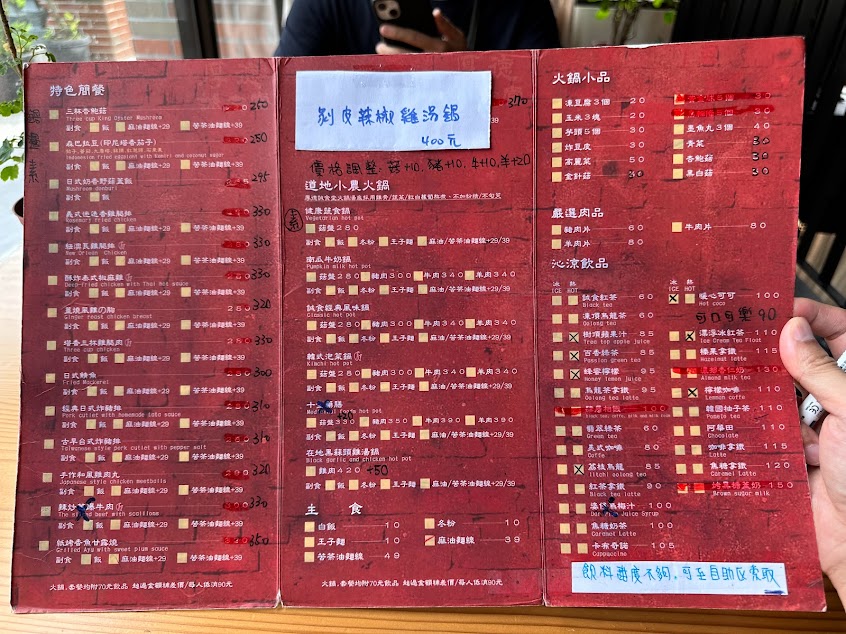 特色簡餐
三杯杏鮑菇 250
Three cup King Oyster Mushroom
副食 飯 麻油麵線+29 苦茶油麵線+39
Indonesian fried eggplant with Kumeri and coconut sugar
副食 飯 麻油麵線+29 苦茶油麵線+39
日式奶香野菇蓋飯 295
Mushroom donburi
副食 飯
義式迷迭香雞腿排 330
Rosemary fried chicken
副食 飯 麻油麵線+29 苦茶油麵線+39
紐澳良雞腿排 330
New Orlean Chicken
副食 飯 麻油麵線+29 苦茶油麵線+39
酥炸泰式椒麻雞 330
Deep-fried chicken with Thai hot sauce
副食 飯 麻油麵線+29 苦茶油麵線+39
320
Ginger roast chicken breast
副食 飯 麻油麵線+29 苦茶油麵線+39
塔香三杯雞腿肉 330
Three cup chicken
副食 飯 麻油麵線+29 苦茶油麵線+39
日式鯖魚 300
Fried Mackerel
副食 飯 麻油麵線+29 苦茶油麵線+39
經典日式炸豬排 310
Pork cutlet with homemade tofu sauce
副食 飯 麻油麵線+29 苦茶油麵線+39
古早台式炸豬排 310
Taiwanese style pork cutlet with pepper salt
副食 飯 麻油麵線+29 苦茶油麵線+39
手作和風雞肉丸 320
Japanese style chicken meatballs
副食 飯 麻油麵線+29 苦茶油麵線+39
330
副食 飯 麻油麵線+29 苦茶油麵線+39
紙烤香魚甘露燒 350
Grilled Ayu with sweet plum sauce
副食 飯 麻油麵線+29 苦茶油麵線+39
火鍋、套餐均附70元飲品 超過金額補差價/每人低消90元
剝皮辣椒雞湯鍋 370
400元
價格調整 菇+10、豬+10、牛+10、羊+20
道地小農火鍋
健康蔬食鍋
Vegetarian hot pot
素 菇盤280
副食 飯 冬粉 王子麵 麻油/苦茶油麵線+29/39
南瓜牛奶鍋
Pumpkin milk hot pot
菇盤240 豬肉300 牛肉340 羊肉340
副食 飯 冬粉 王子麵 麻油/苦茶油麵線+29/39
試食經典風味鍋
Classic hot pot
菇盤280 豬肉300 牛肉340 羊肉340
副食 飯 冬粉 王子麵 麻油/苦茶油麵線+29/39
韓式泡菜鍋
Kimchi hot pot
菇盤280 豬肉300 牛肉340 羊肉340
副食 飯 冬粉 王子麵 麻油/苦茶油麵線+29/39
菇盤330 豬肉350 牛肉390 羊肉390
副食 飯 冬粉 王子麵 麻油/苦茶油麵線+29/39
在地黑蒜頭雞湯鍋
Black garlic and chicken hot pot
雞肉420 +50
副食 飯 冬粉 王子麵 麻油/苦茶油麵線+29/39
主食
白飯 10 冬粉 10
王子麵 10 麻油麵線 39
苦茶油麵線 49
火鍋、套餐均附70元飲品 超過金額補差價/每人低消90元
火鍋小品
凍豆腐3個 20
玉米3塊 20 魚丸3個 40
芋頭5個 30 青菜 30
炸豆皮 30 杏鮑菇 30
高麗菜 50 黑白菇 30
金針菇 30
嚴選肉品
豬肉片 60 牛肉片 80
羊肉片 80
沁涼飲品
冰 熱 冰 熱
ICE HOT ICE HOT
試食紅茶 60 暖心可可 100
Black tea Hot coco
凍頂烏龍茶 60 90
Oolong tea
樹頂蘋果汁 85 漂浮冰紅茶 115
Tree top apple juice Ice Cream Tea Float
百香綠茶 85 榛果拿鐵 115
Passion green tea Hazelnut latte
蜂蜜檸檬 95
Honey lemon juice Almond milk tea
烏龍茶拿鐵 95 檸檬咖啡 110
Oolong tea latte Lemon coffe
100 韓國柚子茶 110
Pomelo tea
翡翠綠茶 60 阿華田 110
Green tea Chocolate
美式咖啡 80 咖啡拿鐵 115
Coffe Latte
荔枝烏龍 85 焦糖拿鐵 120
litchi oolong tea Caramel Latte
紅茶拿鐵 90 150
Black tea latte Brown sugar milk
95
焦糖奶茶 100
Caramat Latte
卡布奇諾 105
Cappuccino
飲料甜度不夠,可至自助區索取